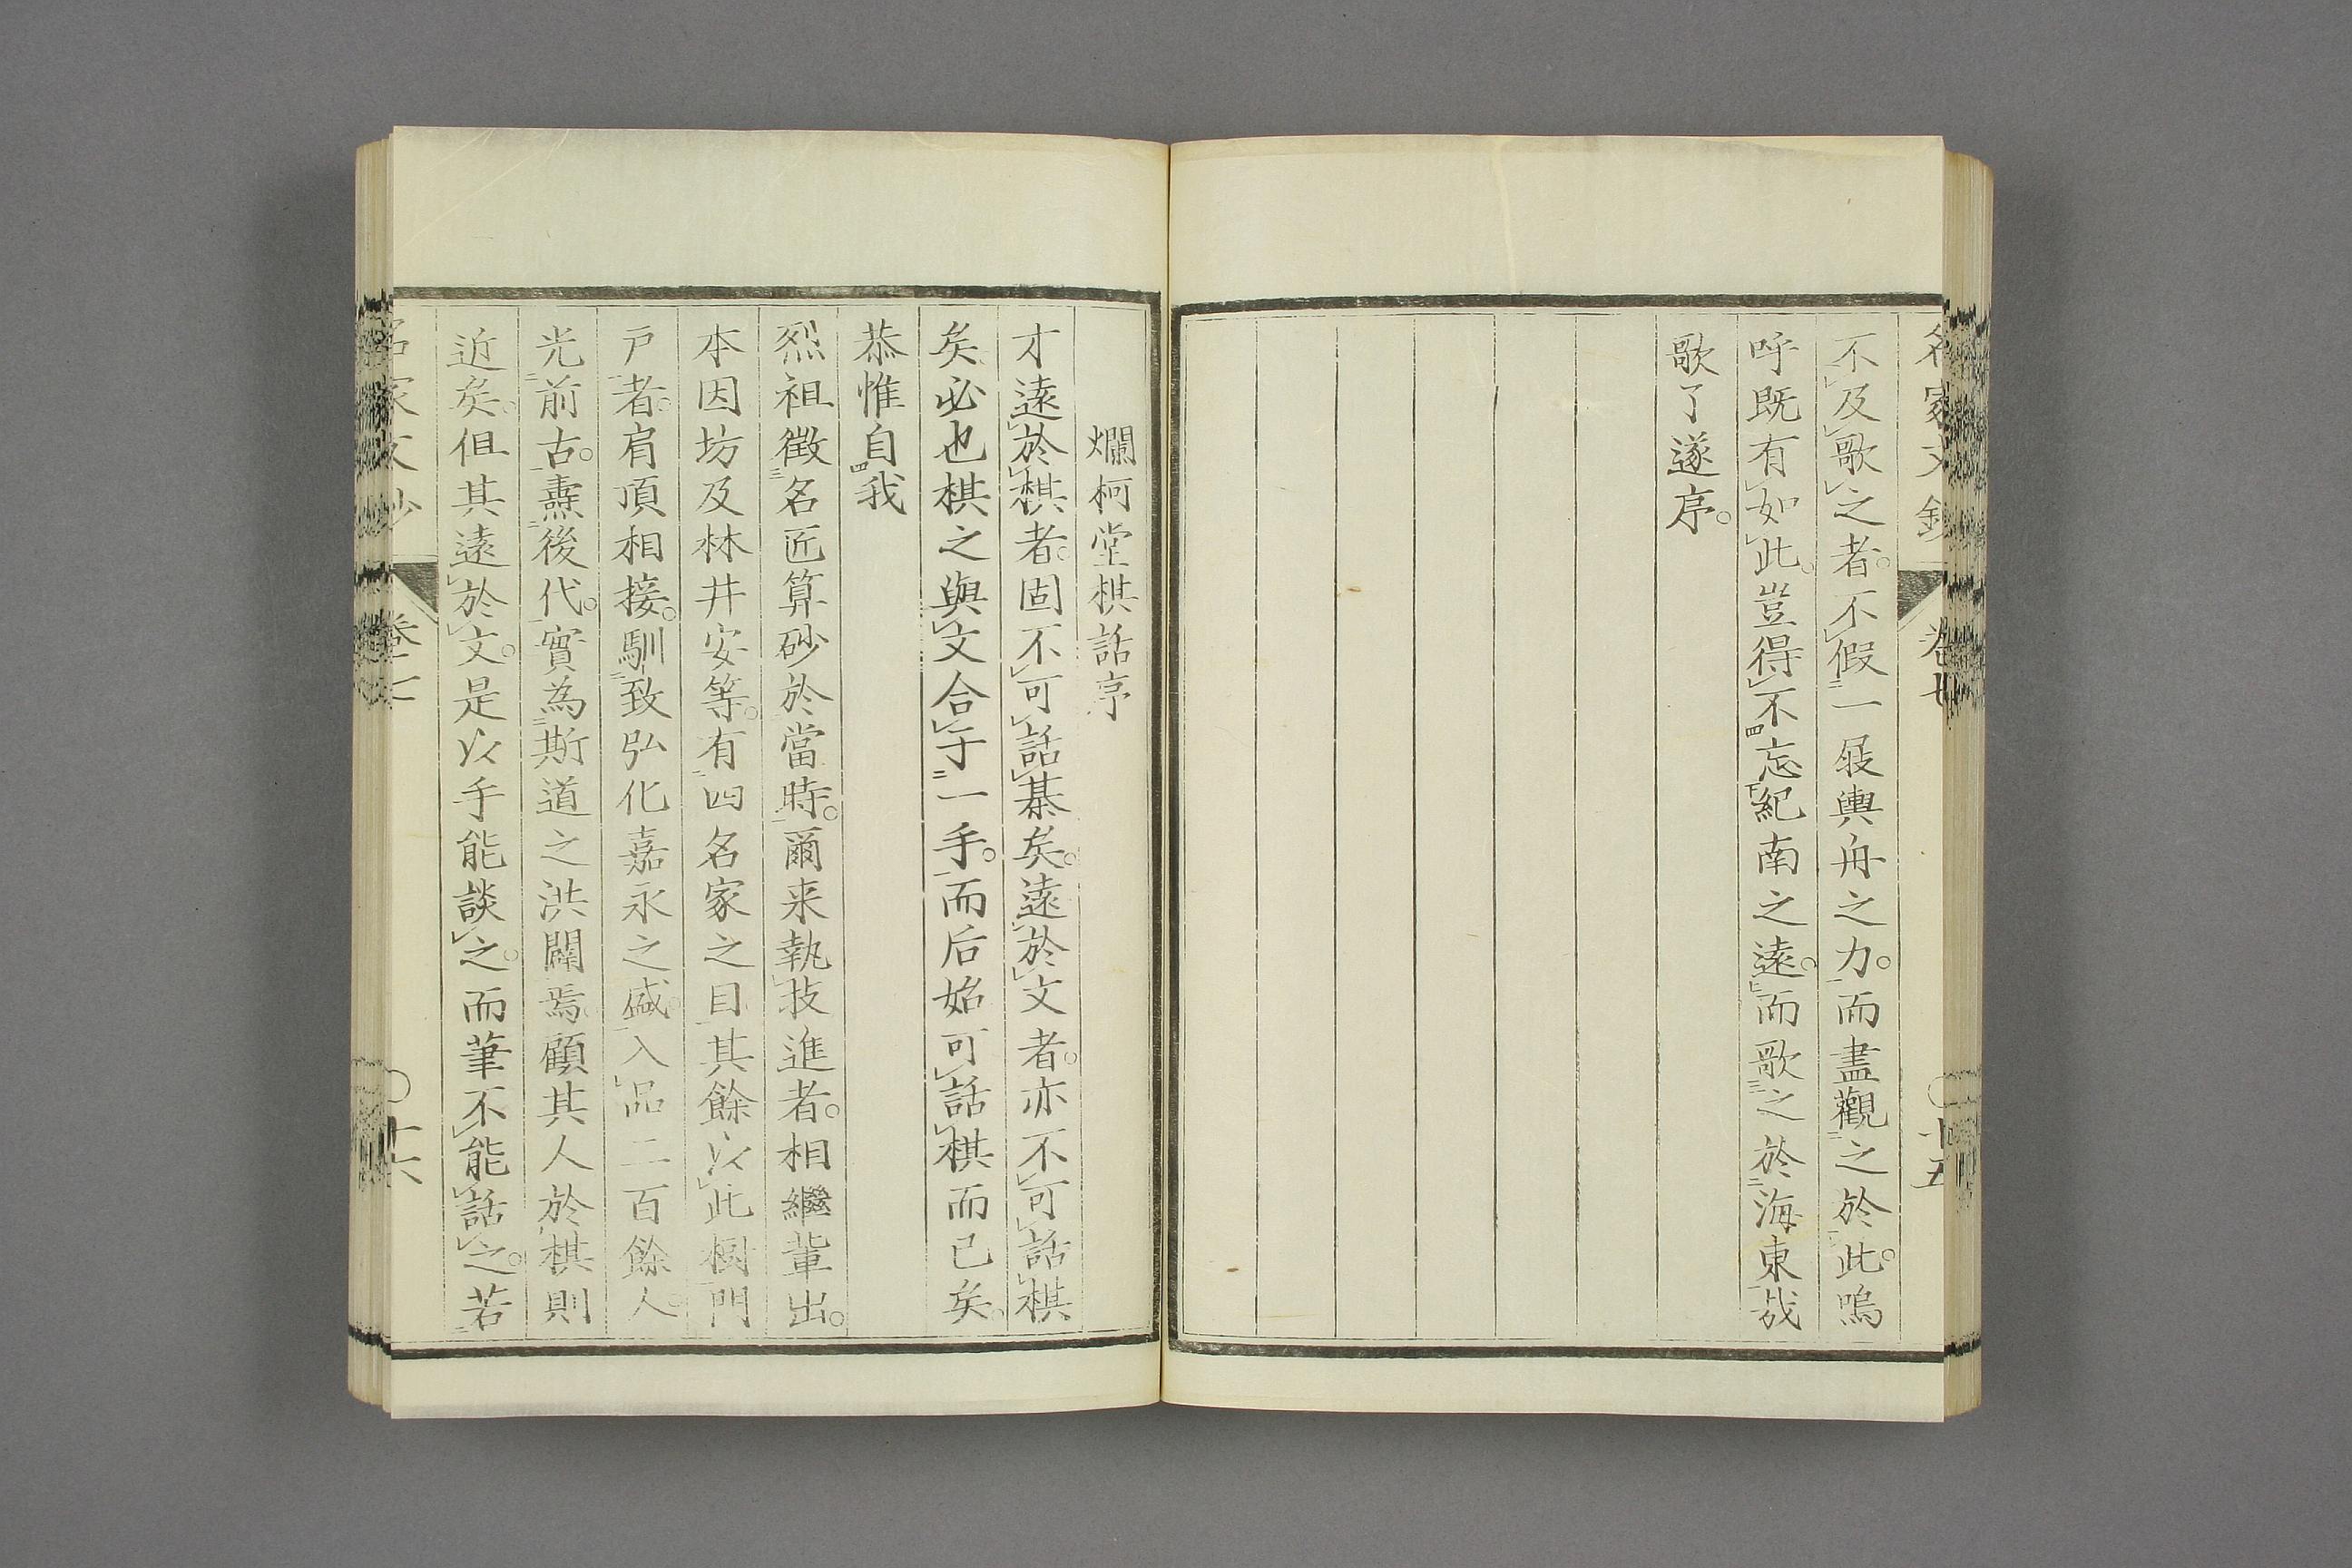 不及歌之者。不假一屐輿舟之力。而盡觀之於此。嗚
呼既有如此。豈得不忘紀南之遠。而歌之於海東哉
歌了遂序。
爛柯堂棋話序
才遠於棋者。固不可話棊矣。遠於文者。亦不可話棋
矣。必也棋之與文合于一手。而后始可話棋而已矣。
恭惟自我
烈祖徵名匠算砂於當時。爾来執技進者。相繼輩出。
本因坊及林井安等。有四名家之目。其餘以此樹門
戸者。肩頂相接。馴致弘化嘉永之盛。入品二百餘人。
光前古。燾後代。實為斯道之洪闢焉。顧其人於棋則
近矣。但其遠於文。是以手能談之。而筆不能話之。若